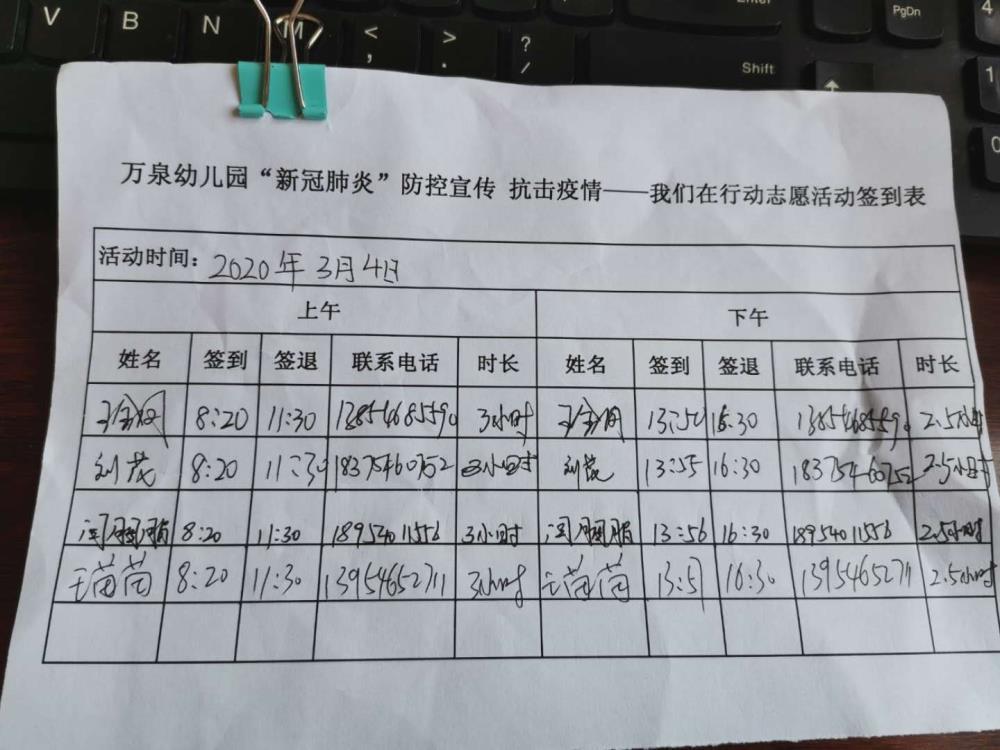 V B N M < , > . ? / Enter PgDn 4
Shift 1
0
万泉幼儿园“新冠肺炎”防控宣传 抗击疫情——我们在行动志愿活动签到表
活动时间：2020年3月4日
上午 下午
姓名 签到 签退 联系电话 时长 姓名 签到 签退 联系电话 时长
8:20 11:30 13854685590 3小时 13:50 16:30 13854685590 2.5小时
刘茂 8:20 11:30 18375460752 3小时 刘茂 13:55 16:30 18375460752 2.5小时
8:20 11:30 18954011556 3小时 13:56 16:30 18954011556 2.5小时
王苗苗 8:20 11:30 13954652711 3小时 王苗苗 13:51 16:30 13954652711 2.5小时